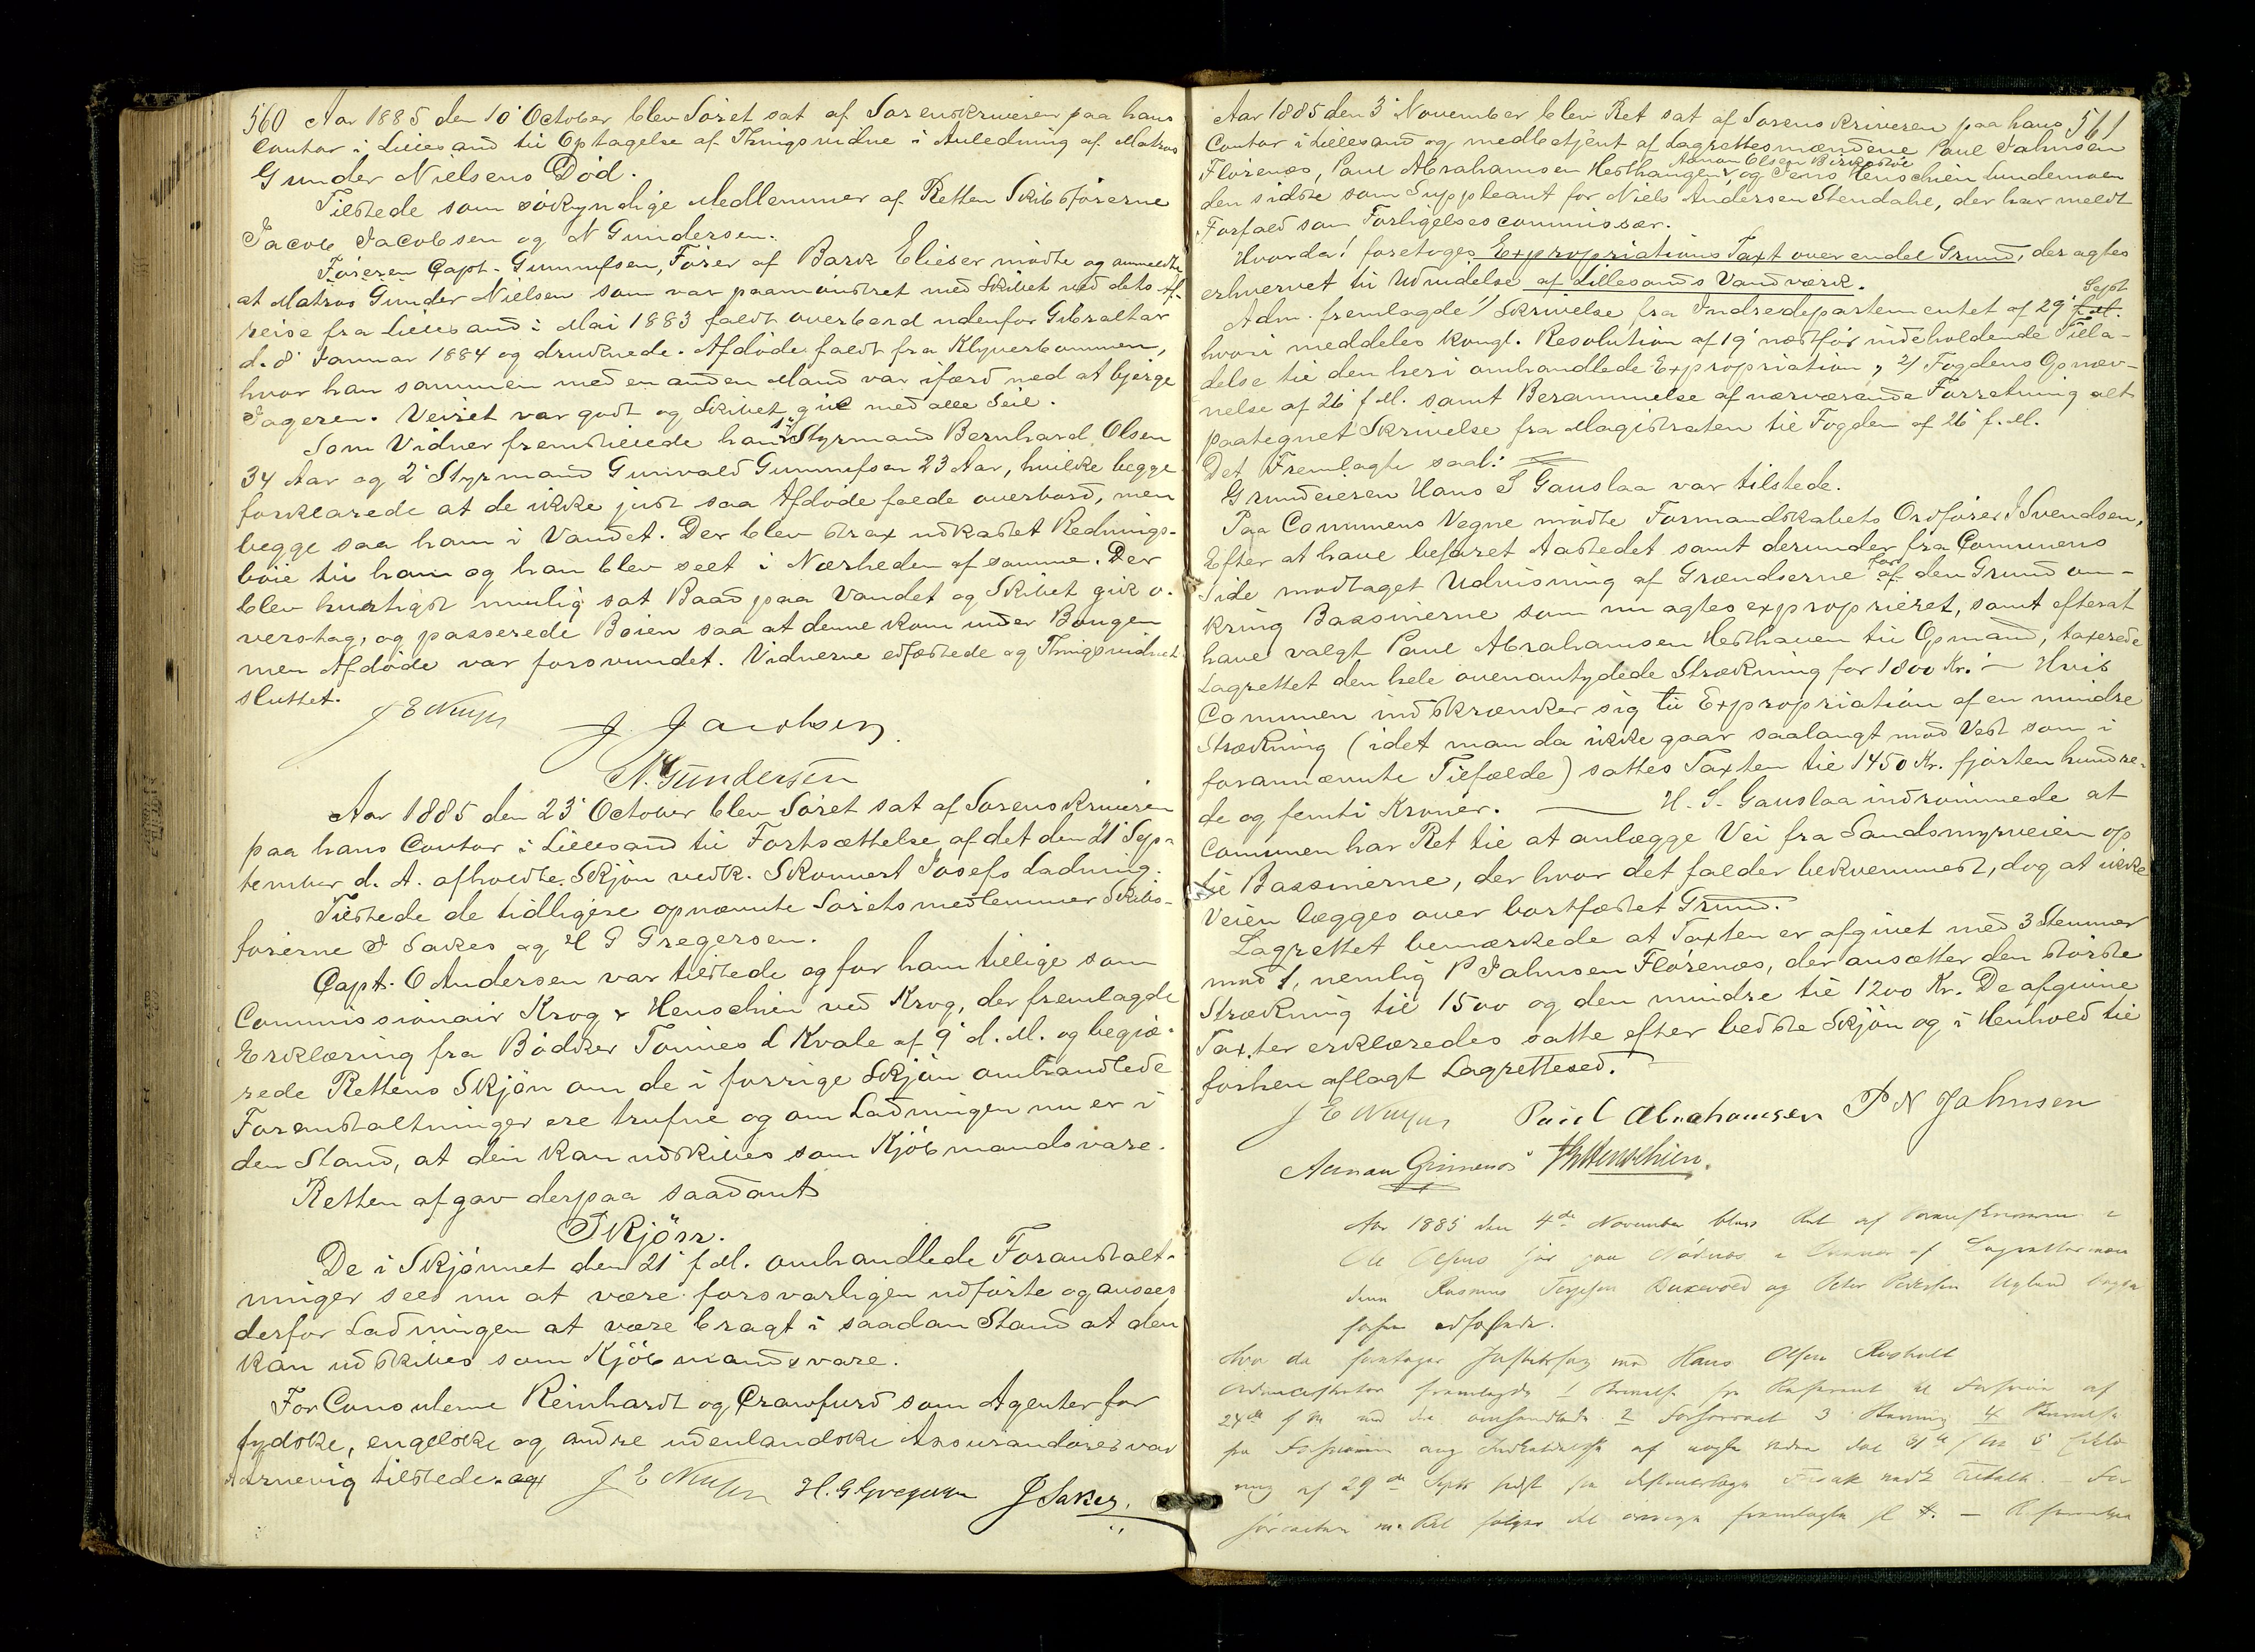 560 Aar 1885 den 10' October blev Söret sat af Sorenskriveren paa hans
Contor i Lillesand til Optagelse af Thingsvidne i Anledning af Matros
Gunder Nielsens Död.
Tilstede som sökyndige Medlemmer af Retten Skibsförerne
Jacob Jacobsen og N Gundersen.
Föreren Capt. Gunnufsen, Förer af Bark Elieser mödte og anmeldte
at Matros Gunder Nielsen som var paamönstret med Skibet ved dets Af-
reise fra Lillesand i Mai 1883 faldt overbord udenfor Gibraltar
d. 8' Januar 1884 og druknede. Afdöde faldt fra Klyverbommen,
hvor han sammen med en anden Mand var ifærd med at bjerge
Jageren. Veiret var godt og Skibet gik med alle Seil.
Som Vidner fremstillede han 1' Styrmand Bernhard Olsen
34 Aar og 2' Styrmand Gunvald Gunnufsen 23 Aar, hvilke begge
forklarede at de ikke just saa Afdöde falde overbord, men
begge saa ham i Vandet. Der blev strax udkastet Rednings-
böie til ham og han blev seet i Nærheden af samme. Der
blev hurtigst mulig sat Baad paa Vandet og Skibet gik o-
verstag, og passerede Böien saa at denne kom under Bougen
men Afdöde var forsvundet. Vidnerne edfæstede og Thingsvidnet
sluttet.
J. Jacobsen
N. Gundersen
Aar 1885 den 23' October blev Söret sat af Sorenskriveren
paa hans Contor i Lillesand til Fortsættelse af det den 21' Sep-
tember d. A. afholdte Skjön vedk. Skonnert Josefs Ladning.
Tilstede de tidligere opnævnte Söretsmedlemmer Skibs-
förerne J Sakes og H G Gregersen.
Capt. O Andersen var tilstede og for ham tillige som
Commissionair Krog & Henschien ved Krog, der fremlagde
Erklæring fra Bödker Tönnes L Kvale af 9' d. M. og begjæ-
rede Rettens Skjön om de i forrige Skjön omhandlede
Foranstaltninger ere trufne og om Ladningen nu er i
den Stand, at den kan udskibes som Kjöbmandsvare.
Retten afgav derpaa saadant
Skjön.
De i Skjönnet den 21' f.M. omhandlede Foranstalt-
ninger sees nu at være forsvarligen udförte og ansees
derfor Ladningen at være bragt i saadan Stand at den
kan udskibes som Kjöbmandsvare.
For Consulerne Reinhardt og Crawfurd som Agenter for
tydske, engelske og andre udenlandske Assurandörer var
Arnevig tilstede. og
H. G Gregersen J Sakes.
Aar 1885 den 3' November blev Ret sat af Sorenskriveren paa hans 561
Contor i Lillesand og medbetjent af Lagrettesmændene Paul Jahnsen
Aanon Olsen Birkedal
Flörenæs, Paul Abrahamsen Hesthaugen, og Jens Henschien Lundemoen
den sidste som Suppleant for Niels Andersen Stendahl, der har meldt
Forfald som Forligelsescommissær.
Hvorda! foretoges Expropriations Taxt over endel Grund, der agtes
erhvervet til Udvidelse af Lillesands Vandværk.
Sept
Adm. fremlagde 1/ Skrivelse fra Indredepartementet af 29' f.M.
hvori meddeles kongl. Resolution af 19' næstfor indeholdende Tilla-
delse til den heri omhandlede Expropriation, 2/ Fogdens Opnæv-
nelse af 26' f.M. samt Berammelse af nærværende Forretning alt
paategnet Skrivelse fra Magistraten til Fogden af 26' f.M.
Det Fremlagte saal:
Grundeieren Hans S Gauslaa var tilstede.
Paa Communens Vegne mödte Formandskabets Ordförer J Svendsen.
Efter at have befaret Aastedet samt derunder fra Communens
Side modtaget Udvisning af Grændserne for af den Grund om-
kring Bassinerne som nu agtes exproprieret, samt efterat
have valgt Paul Abrahamsen Hesthauen til Opmand, taxerede
Lagrettet den hele ovenantydede Strækning for 1800 Kr. — Hvis
Communen indskrænker sig til Expropriation af en mindre
Strækning (idet man da ikke gaar saalangt mod Vest som i
forannævnte Tilfælde) sattes Taxten til 1450 Kr. fjorten hundre-
de og femti Kroner. — H. S. Gauslaa indrömmede at
Communen har Ret til at anlægge Vei fra Sandsmyrveien op
til Bassinerne, der hvor det falder bekvemmest, dog at ikke
Veien lægges over bortfæstet Grund.
Lagrettet bemærkede at Taxten er afgivet med 3 Stemmer
mod 1, nemlig P Jahnsen Flörenæs, der ansætter den störste
Strækning til 1500 og den mindre til 1200 Kr. De afgivne
Taxter erklæredes satte efter bedste Skjön og i Henhold til
forhen aflagt Lagrettesed.
Paul Abrahamsen P N Jahnsen
Aanon Grimenæs JHenschien.
Aar 1885 den 4de November blev Ret af Sorenskriveren i
Ole Olsens paa af Lagrettesmæn
dene Rasmus og Peter Pedersen begge
forhen edfæstede.
Hvor da foretoges Justitssag mod Hans Olsen
Administrator fremlagde 1
24de f M 2 3 4
af 31te f M 5
af 29de Septr
fremlagte